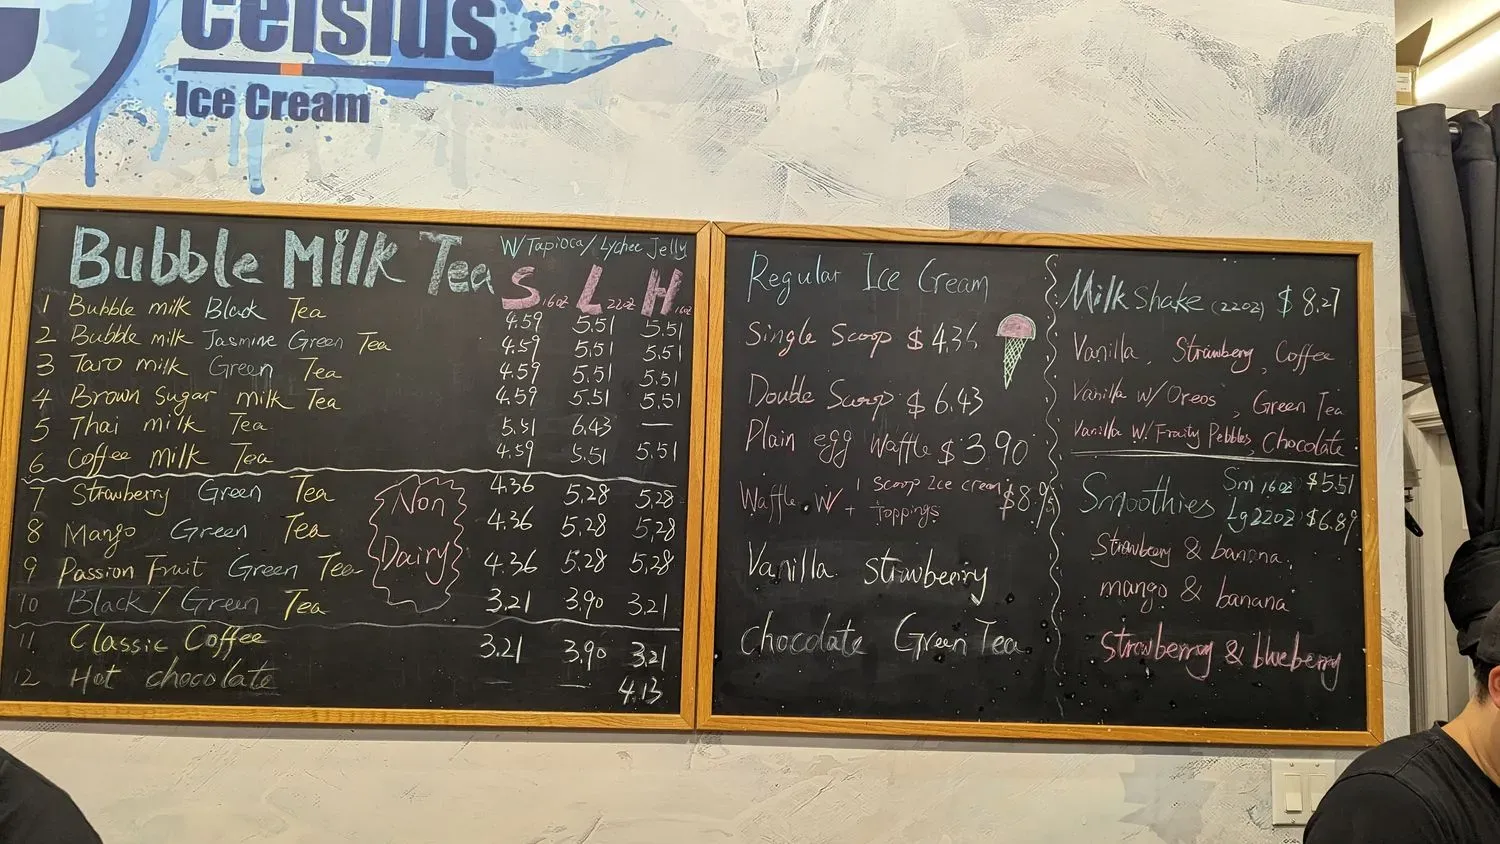 Celsius
Ice Cream
Bubble Milk Tea W/Tapioca/Lychee Jelly
S 16oz L 22oz H 16oz
1 Bubble milk Black Tea 4.59 5.51 5.51
2 Bubble milk Jasmine Green Tea 4.59 5.51 5.51
3 Taro milk Green Tea 4.59 5.51 5.51
4 Brown Sugar milk Tea 4.59 5.51 5.51
5 Thai milk Tea 5.51 6.43 —
6 Coffee milk Tea 4.59 5.51 5.51
7 Strawberry Green Tea 4.36 5.28 5.28
8 Mango Green Tea 4.36 5.28 5.28
9 Passion Fruit Green Tea 4.36 5.28 5.28
10 Black/Green Tea 3.21 3.90 3.21
Non
Dairy
11 Classic Coffee 3.21 3.90 3.21
12 Hot chocolate — — 4.13
Regular Ice Cream
Single Scoop $4.36
Double Scoop $6.43
Plain egg Waffle $3.90
Waffle W/ 1 Scoop Ice cream
+ toppings
Vanilla strawberry
chocolate Green Tea
Milk Shake (22oz) $8.27
Vanilla, Strawberry, Coffee
Vanilla w/ Oreos, Green Tea
Vanilla W/ Fruity Pebbles, Chocolate
Smoothies Sm 16oz $5.51
Lg 22oz $6.89
Strawberry & banana
mango & banana
strawberry & blueberry